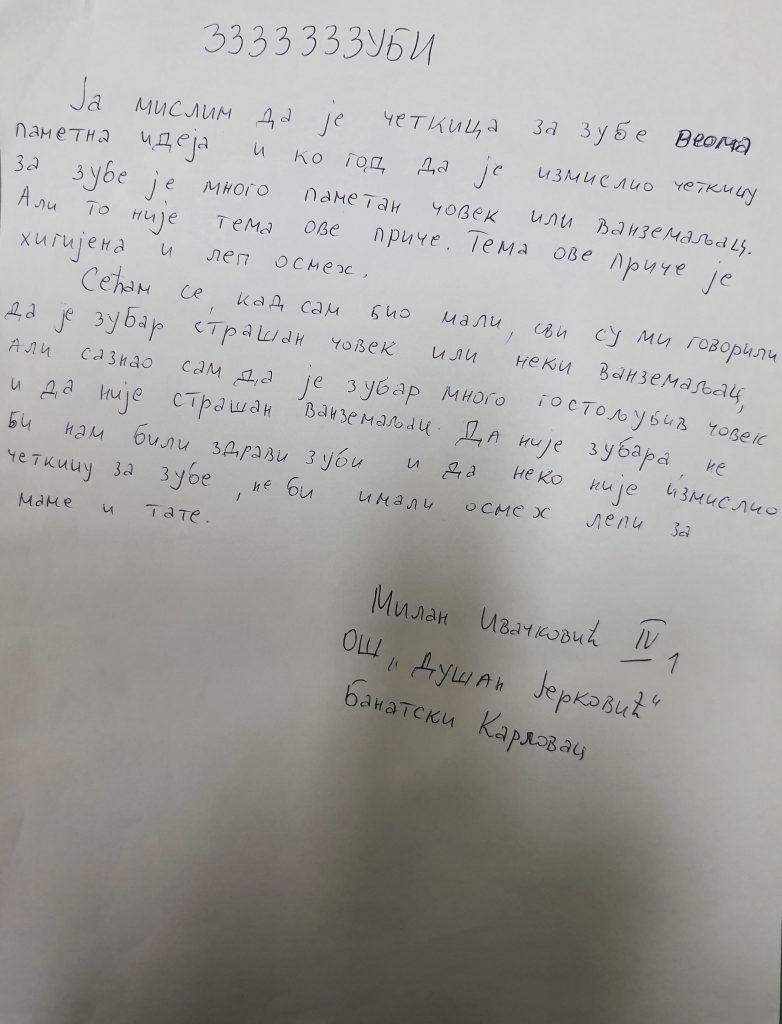 ЗЗЗЗЗЗЗУБИ
Ја мислим да је четкица за зубе веома
паметна идеја и ко год да је измислио четкицу
за зубе је много паметан човек или ванземаљац.
Али то није тема ове приче. Тема ове приче је
хигијена и леп осмех.
Сећам се, кад сам био мали, сви су ми говорили
да је зубар страшан човек или неки ванземаљац,
али сазнао сам да је зубар много гостољубив човек
и да није страшан ванземаљац. Да није зубара, не
би нам били здрави зуби и да неко није измислио
четкицу за зубе, не би имали осмех лепи за
маме и тате.
Милан Ивачковић IV 1
ОШ „Душан Јерковић“
Банатски Карловац